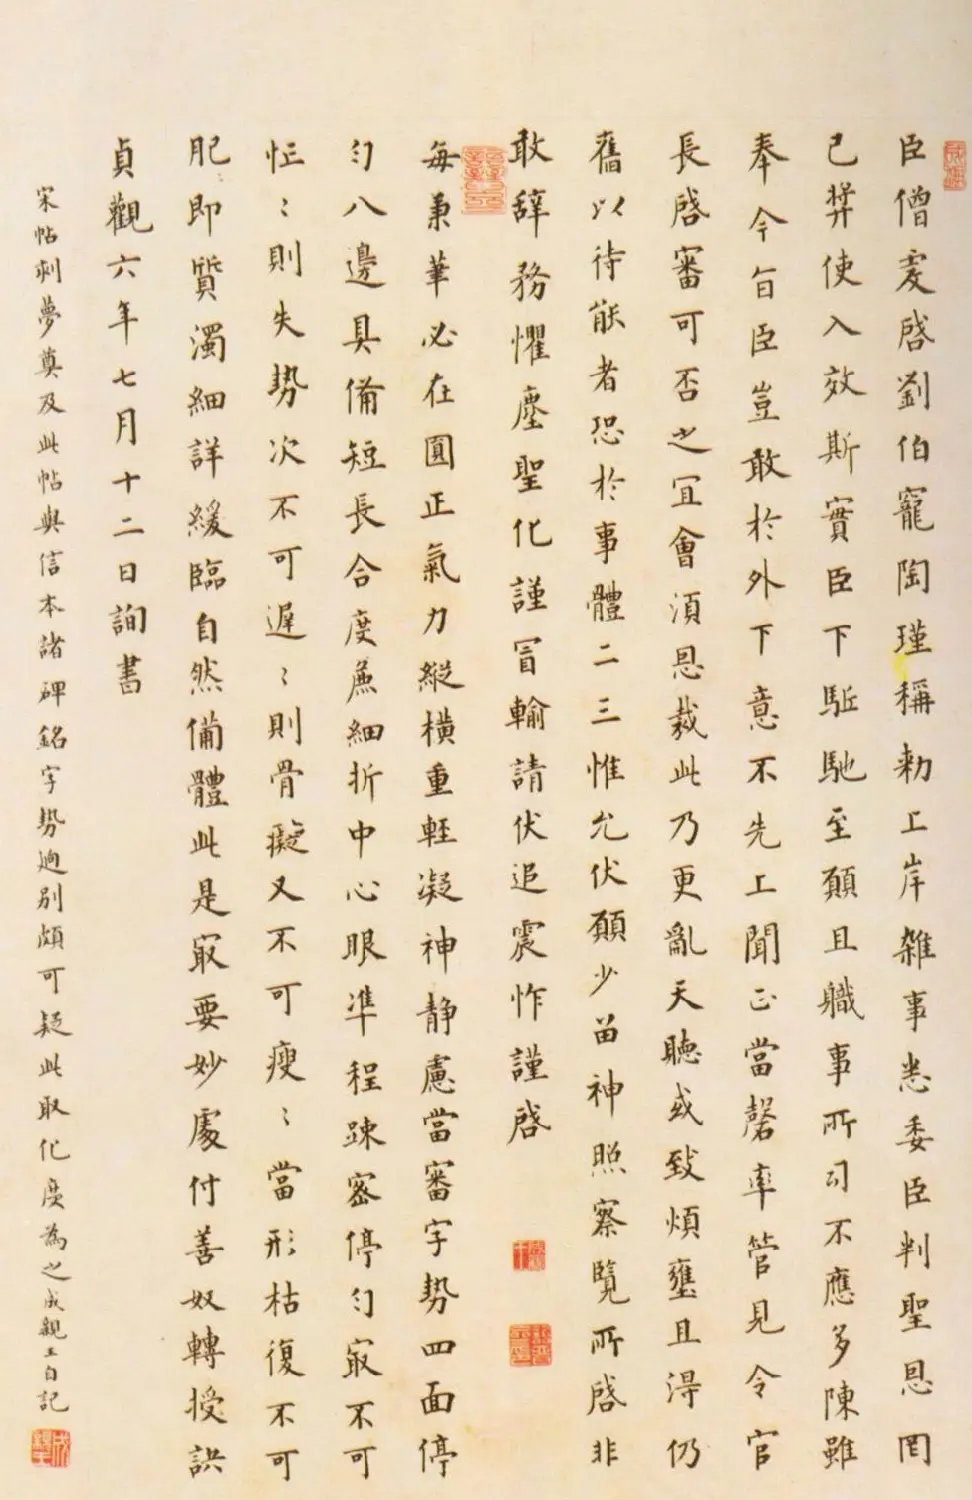 臣僧虔啓劉伯寵陶瑾稱勅上岸雜事悉委臣判聖恩罔
已弊使入效斯實臣下駈馳至願且職事所司不應多陳雖
奉今旨臣豈敢於外下意不先上聞正當罄率管見令官
長啓審可否之冝會湏恩裁此乃更亂天聽或致煩壅且淂仍
舊以待能者恐於事體二三惟允伏願少留神照察覽所啓非
敢辞務懼塵聖化謹冒輸請伏追震怍謹啓
每秉筆必在圓正氣力縱橫重軽凝神静慮當審字勢四面停
匀八邊具備短長合度麁細折中心眼準程踈密停匀冣不可
忙〻則失勢次不可遲〻則骨癡又不可瘦〻當形枯復不可
肥即質濁細詳緩臨自然備體此是冣要妙處付善奴轉授訣
貞觀六年七月十二日詢書
宋帖刺夢奠及此帖與信本諸碑銘字勢迥別頗可疑此取化度為之成親王自記
成親王